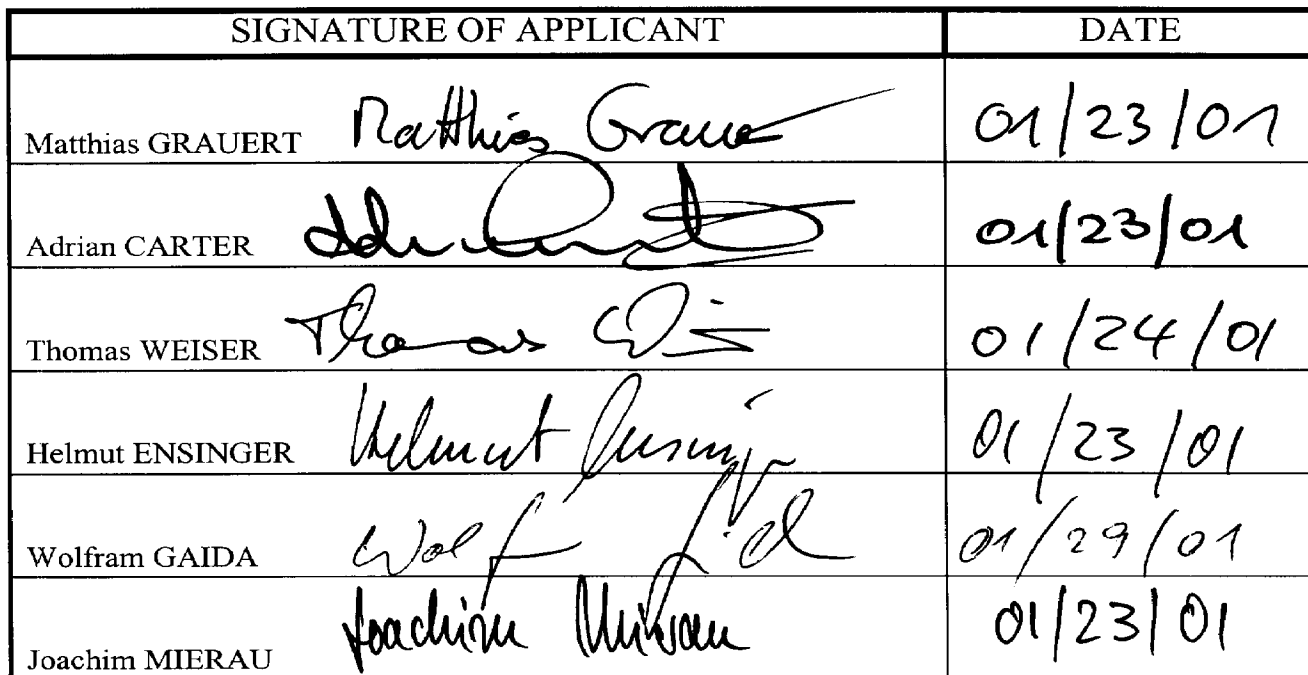 SIGNATURE OF APPLICANT DATE
Matthias GRAUERT Matthias Grauert 01/23/01
Adrian CARTER 01/23/01
Thomas WEISER Thomas 01/24/01
Helmut ENSINGER Helmut Ensinger 01/23/01
Wolfram GAIDA 01/29/01
Joachim MIERAU Joachim Mierau 01/23/01